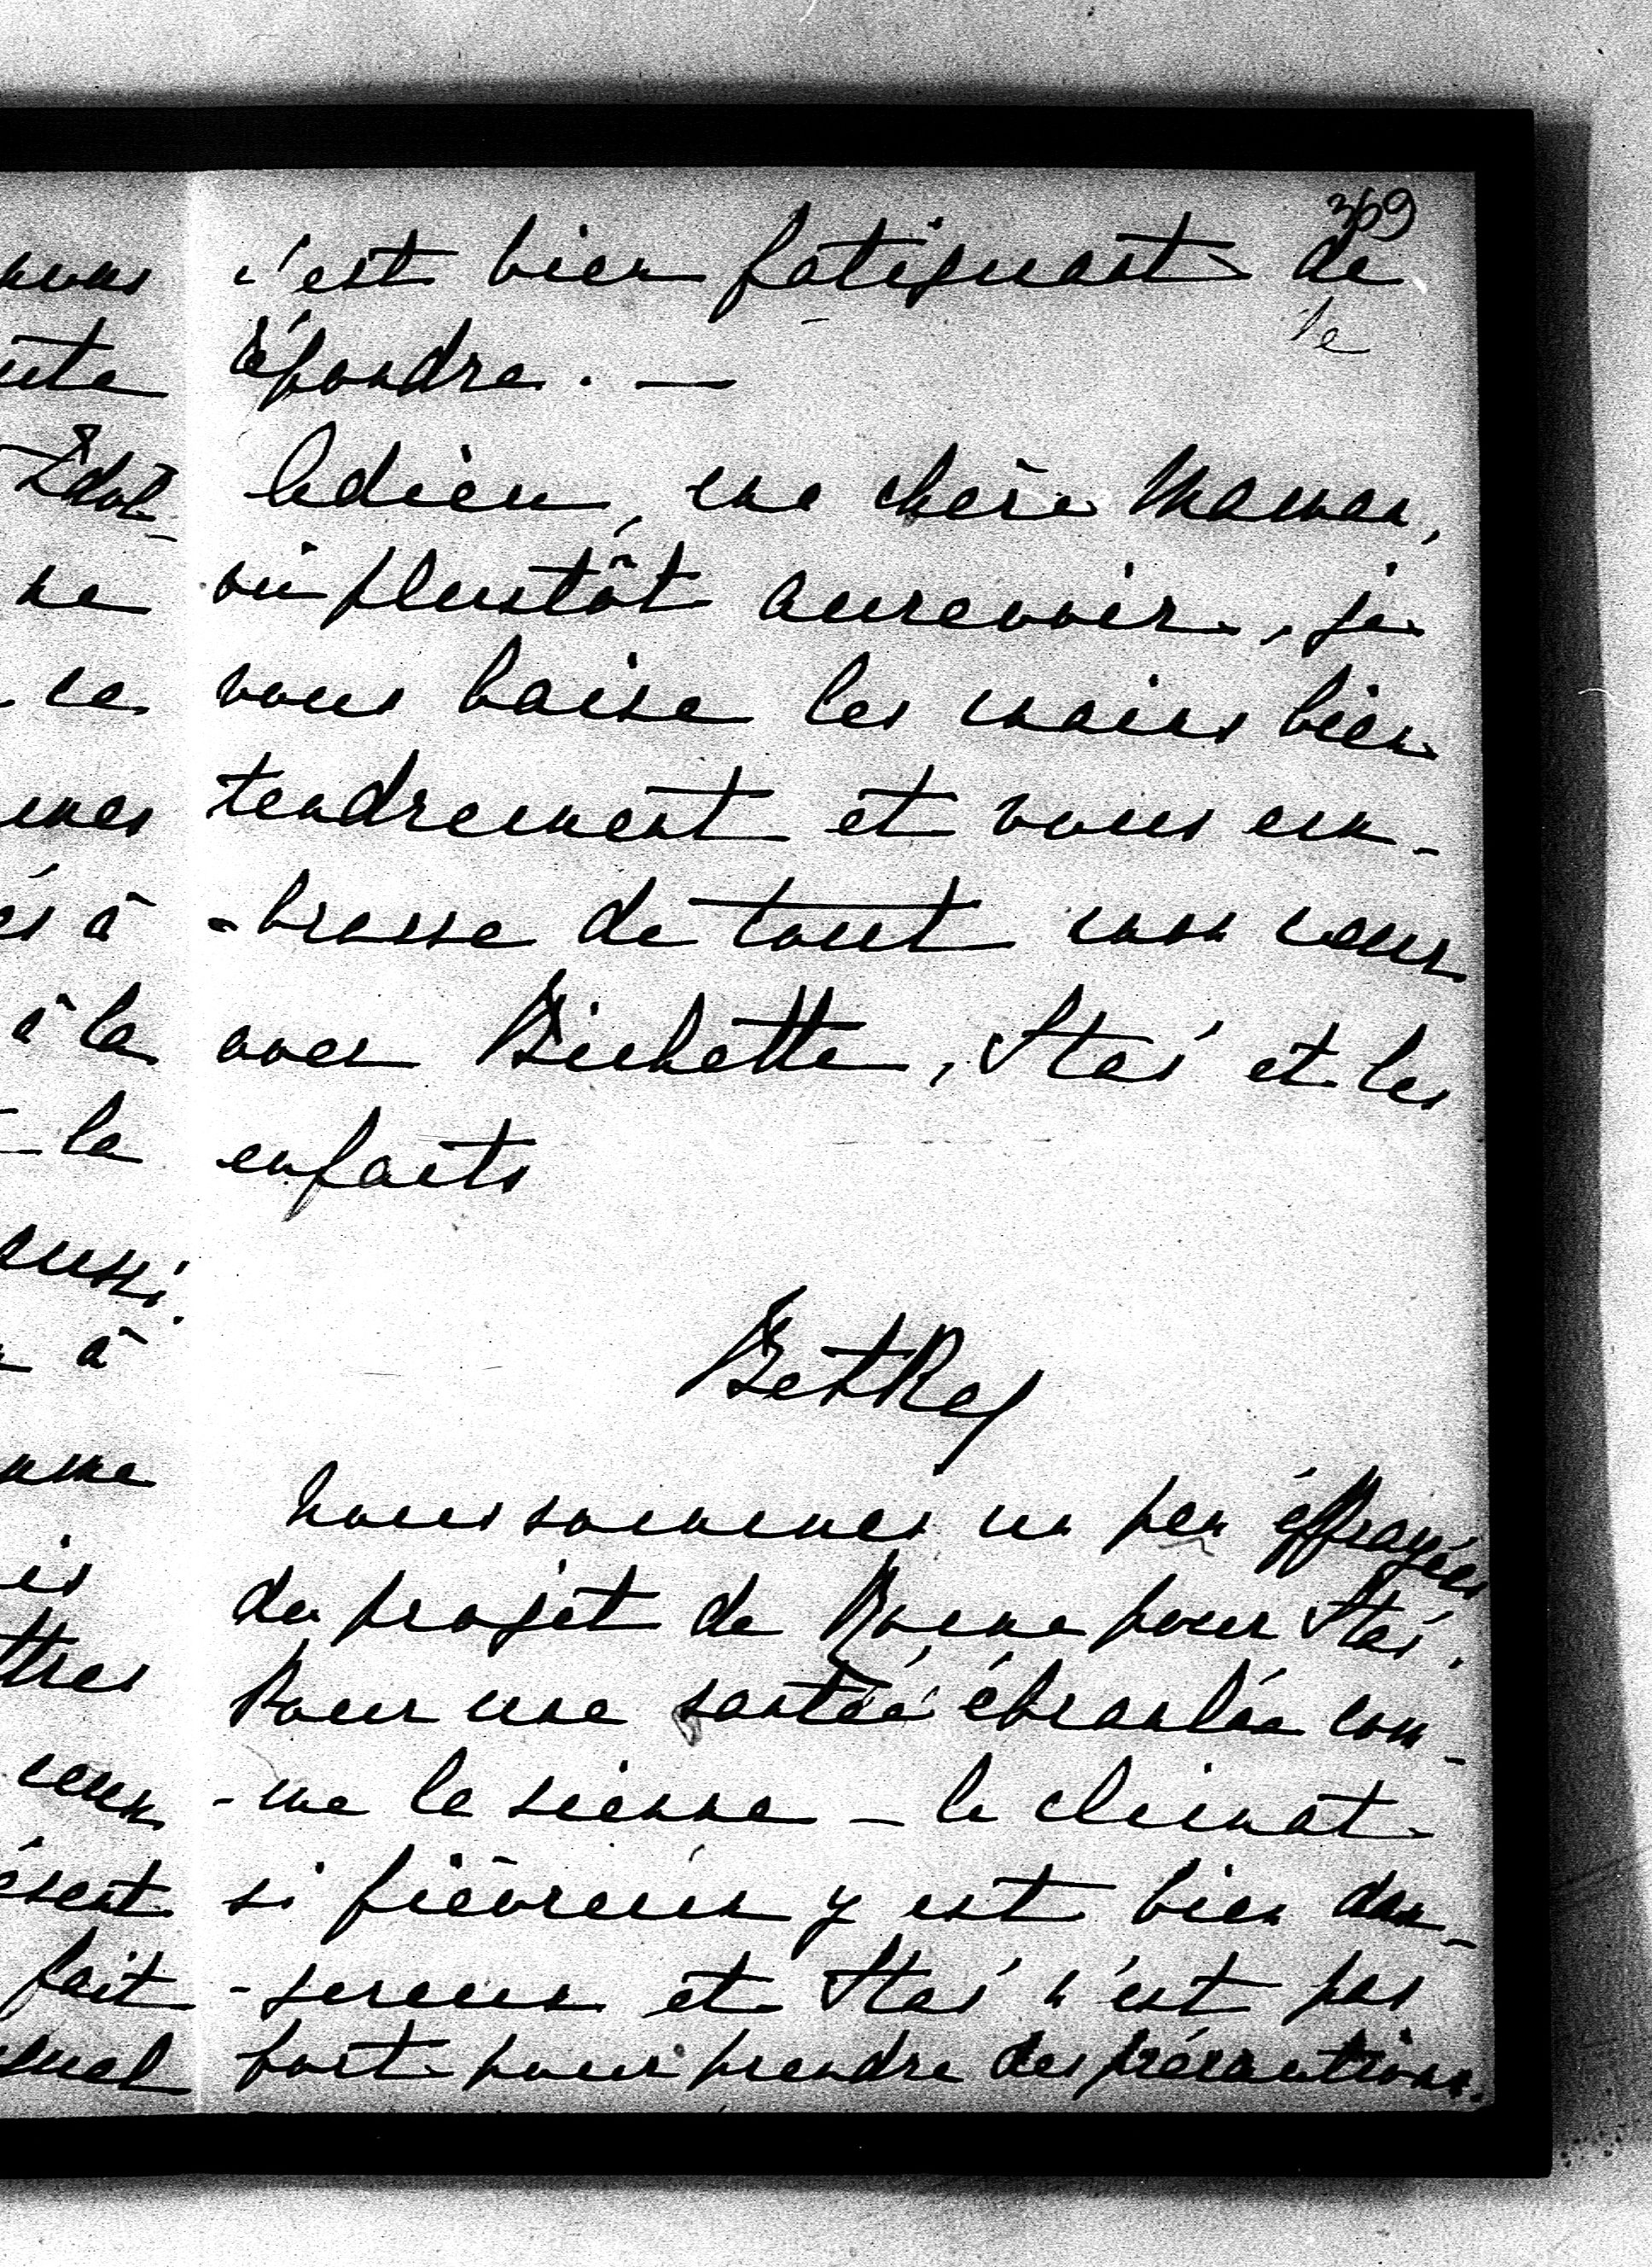 369
c'est bien fatiguant de
le
répondre. —
Adieu, ma chère Maman,
ou plustôt aurevoir, je
vous baise les mains bien
tendrement et vous em-
-brasse de tout mon cœur
avec Bichette, Staś et les
enfants
BetRój
Nous sommes un peu éffrayées
du projet de Rome pour Staś.
Pour une santée ébranlée com-
-me la sienne – le climat
si fièvreux y est bien dan-
-gereux et Staś n'est pas
fort pour prendre des précautions.
nous
Edol
ne
ce
à
à la
la
aussi.
à
fait